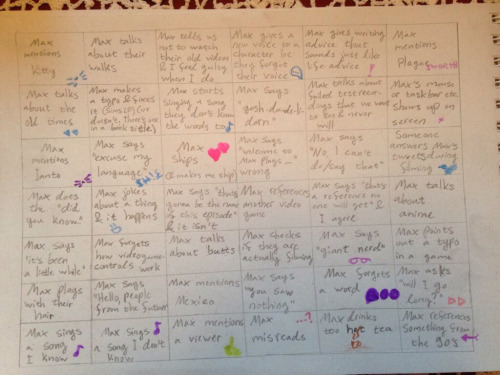 Max
mentions
Kitty
Max talks
about their
walks
Max tells us
not to watch
their old videos
& I feel guilty
when I do
Max gives a
new voice to a
character bc
they forgot
their voice
Max gives writing
advice that
sounds just like
life advice
Max
mentions
Plagueworth
Max talks
about the
old times
Max makes
a typo & fixes
it
in a book title)
Max starts
singing a song
they don't know
the words to
Max says
"gosh-dandelk
darn"
Max talks about
failed test recor-
dings that we want
to see & never
will
Max's mouse
or taskbar etc.
shows up on
screen
Max
mentions
Ianto
Max says
"excuse my
language"
Max
ships
(& makes me ship)
Max says
"welcome to
Max plays_"
wrong
Max says
"No I can't
do/say that"
Someone
answers Max's
tweets during
filming
Max does
the "did
you know"
Max jokes
about a thing
& it happens
Max says "
gonna be the name
of this episode"
& it isn't
Max references
another video
game
Max says "that's
a reference no
one will get" &
I agree
Max talks
about
anime
Max says
"it's been
a little while"
Max forgets
how videogame
controls work
Max talks
about butts
Max checks
if they are
actually filming
Max says
"giant nerd"
Max points
out a typo
in a game
Max plays
with their
hair
Max says
"Hello, people
from the future"
Max mentions
Mexico
Max says
"you saw
nothing"
Max forgets
a word
Max asks
"will I go
home?"
Max sings
a song
I know
Max sings
a song I don't
know
Max mentions
a viewer
Max ...?
misreads
Max drinks
too hot tea
Max references
something from
the 90s